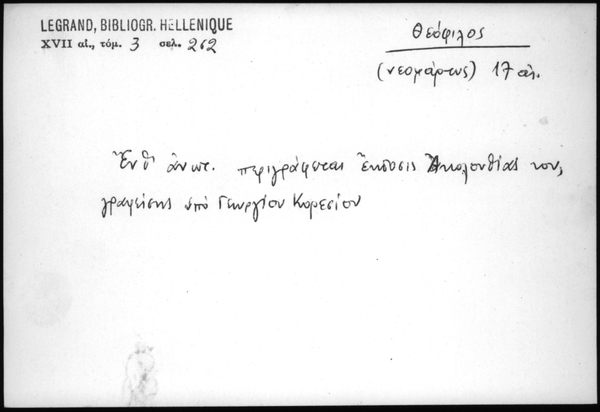 LEGRAND, BIBLIOGR. HELLENIQUE
XVII αἰ., τόμ. 3 σελ. 262
Θεόφιλος
(νεομάρτυς) 17 αἰ.
Ἔνθ' ἀνωτ. περιγράφεται ἔκδοσις Ἀκολουθίας του,
γραφείσης ὑπὸ Γεωργίου Κορεσίου